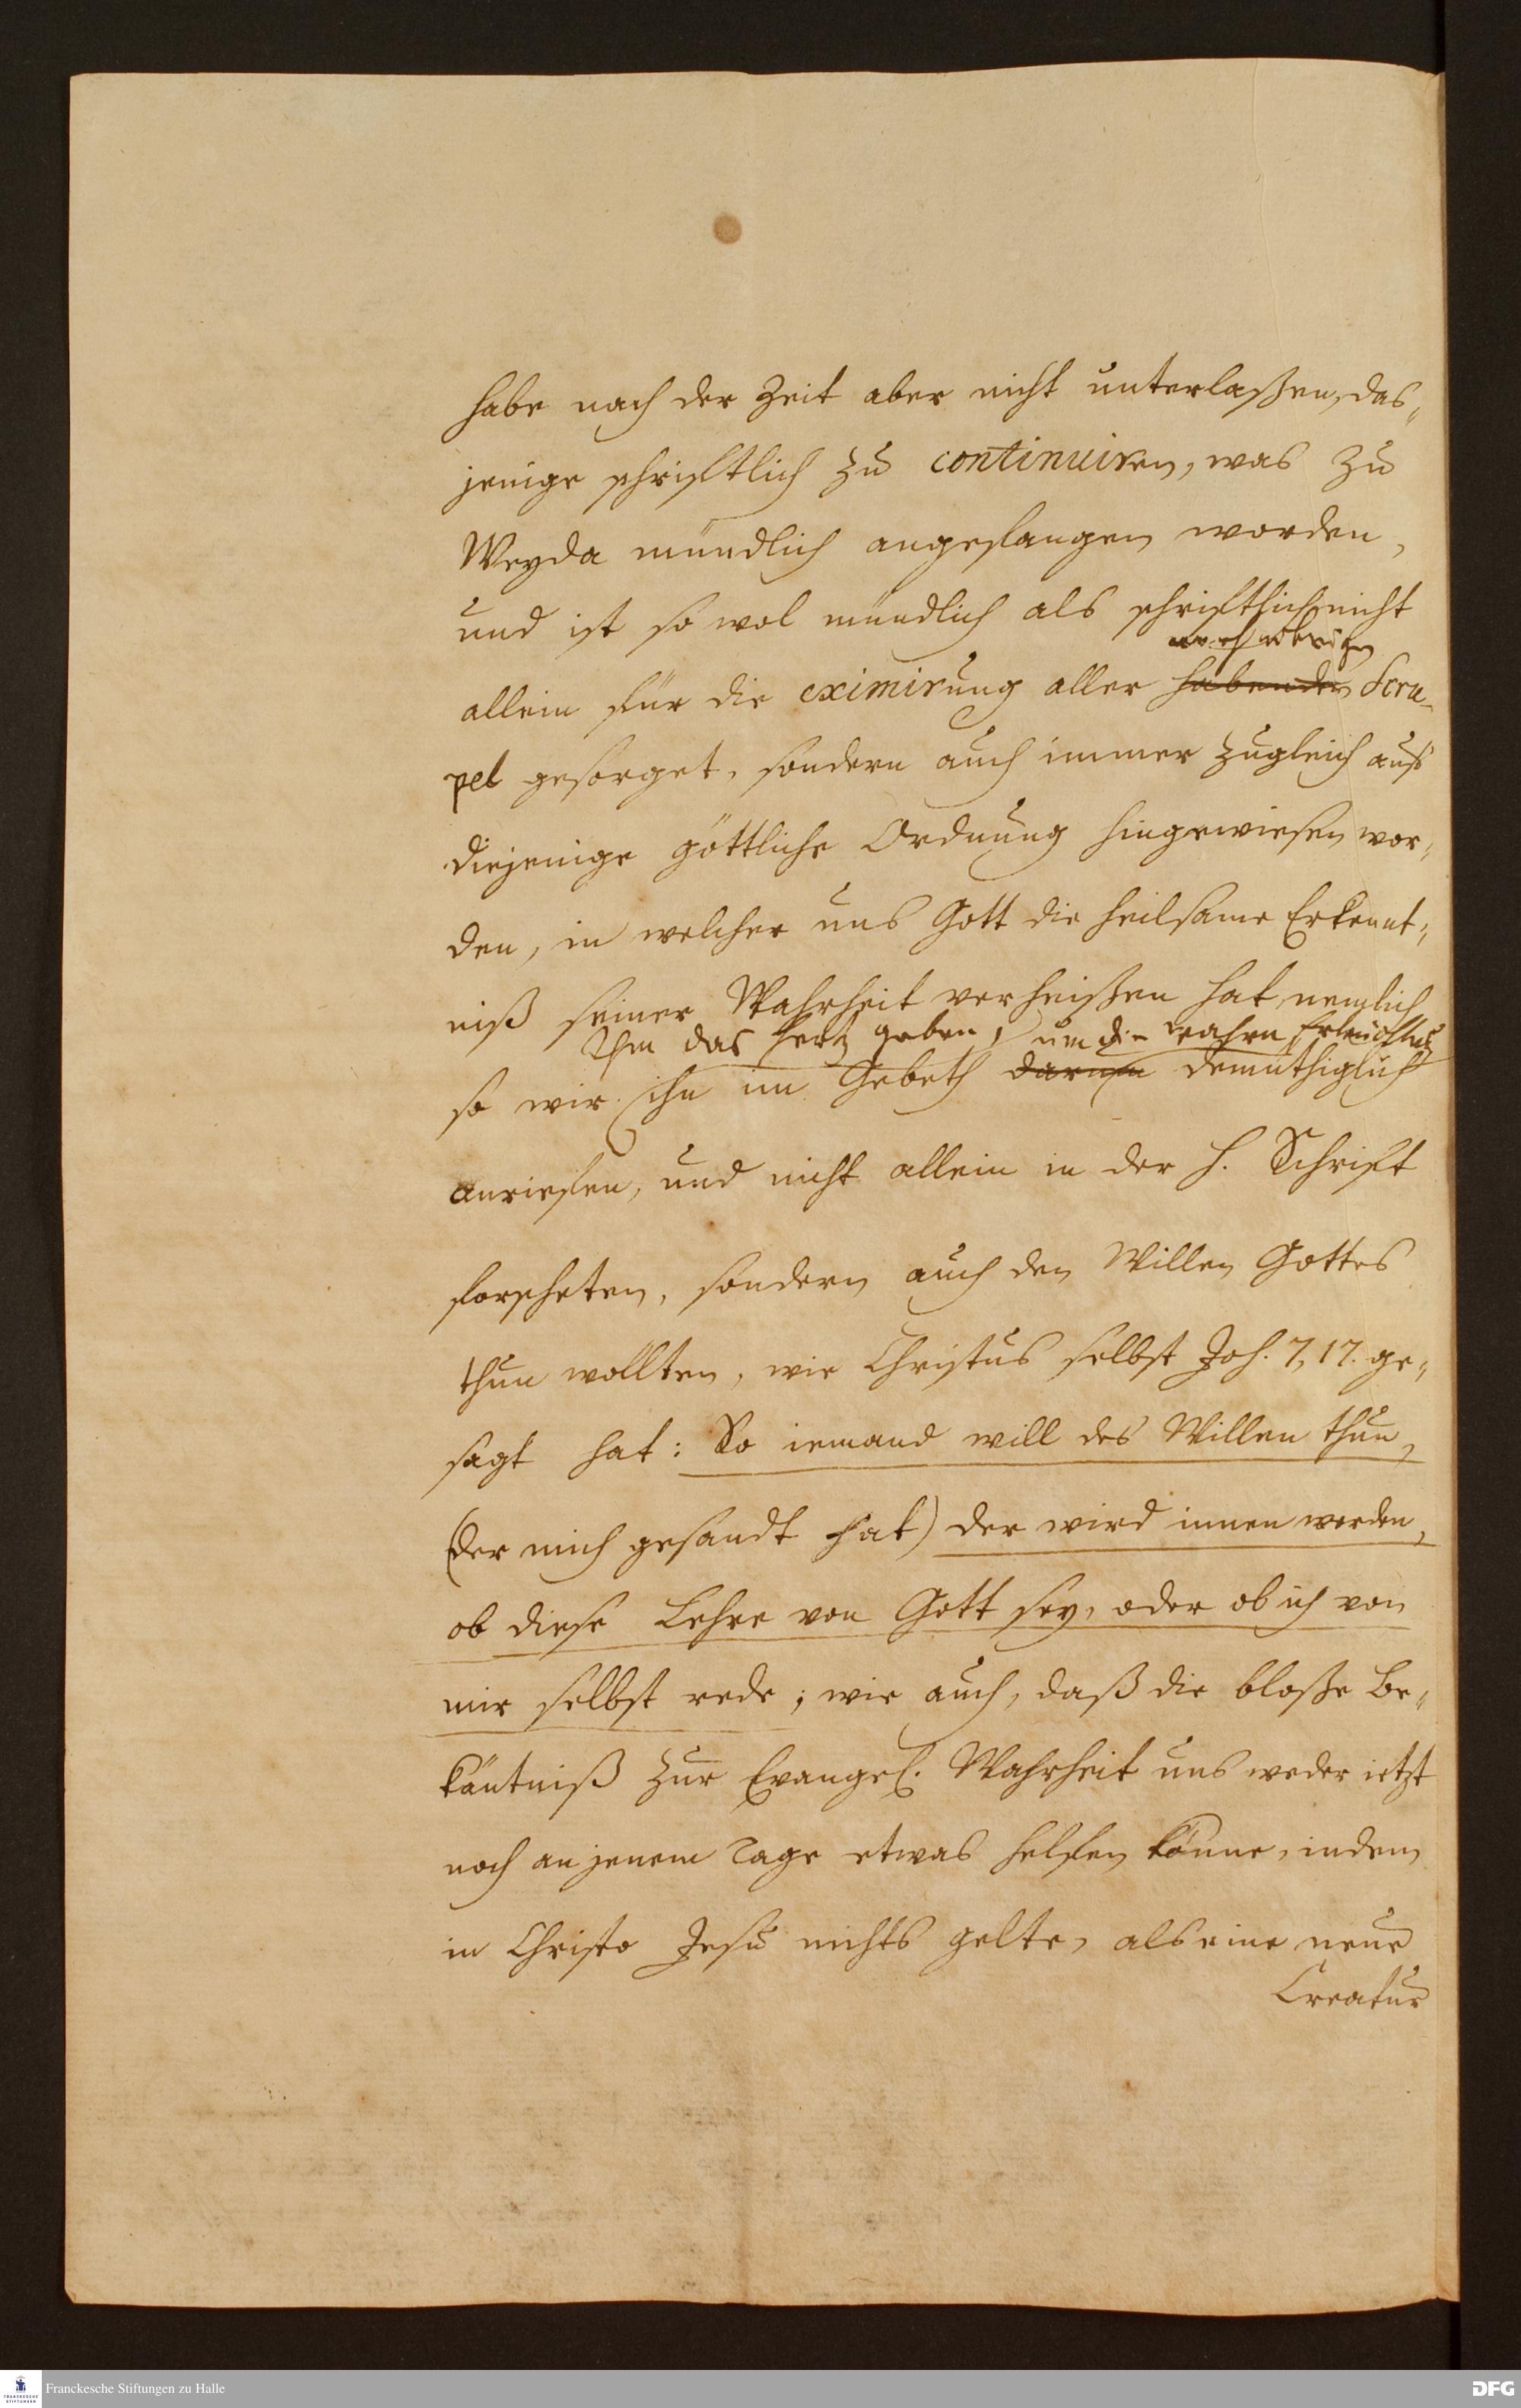 habe nach der Zeit aber nicht unterlaßen, das„
jenige schrifftlich zu continuiren, was zu
Weyda mündlich angefangen worden,
und ist so wol mündlich als schrifftlich nicht
noch übrigen
allein für die eximirung aller habenden Scru-
pel gesorget, sondern auch immer zugleich auf
diejenige göttliche Ordnung hingewiesen wor„
den, in welcher uns Gott die heilsame Erkennt„
niß seiner Wahrheit verheißen hat, nemlich
Ihm das Hertz geben, um die wahre Erleuchtung
so wir ihn im Gebeth darum demüthiglich
anrieffen, und nicht allein in der H. Schrifft
forscheten, sondern auch den Willen Gottes
thun wollten, wie Christus selbst Joh. 7, 17. ge„
sagt hat: So iemand will des Willen thun,
(der mich gesandt hat) der wird innen werden,
ob diese Lehre von Gott sey, oder ob ich von
mir selbst rede; wie auch, daß die bloße Be„
käntniß zur Evangel. Wahrheit uns weder ietzt
noch an jenem Tage etwas helffen könne, indem
in Christo Jesu nichts gelte, als eine neue
Creatur
Franckesche Stiftungen zu Halle
DFG